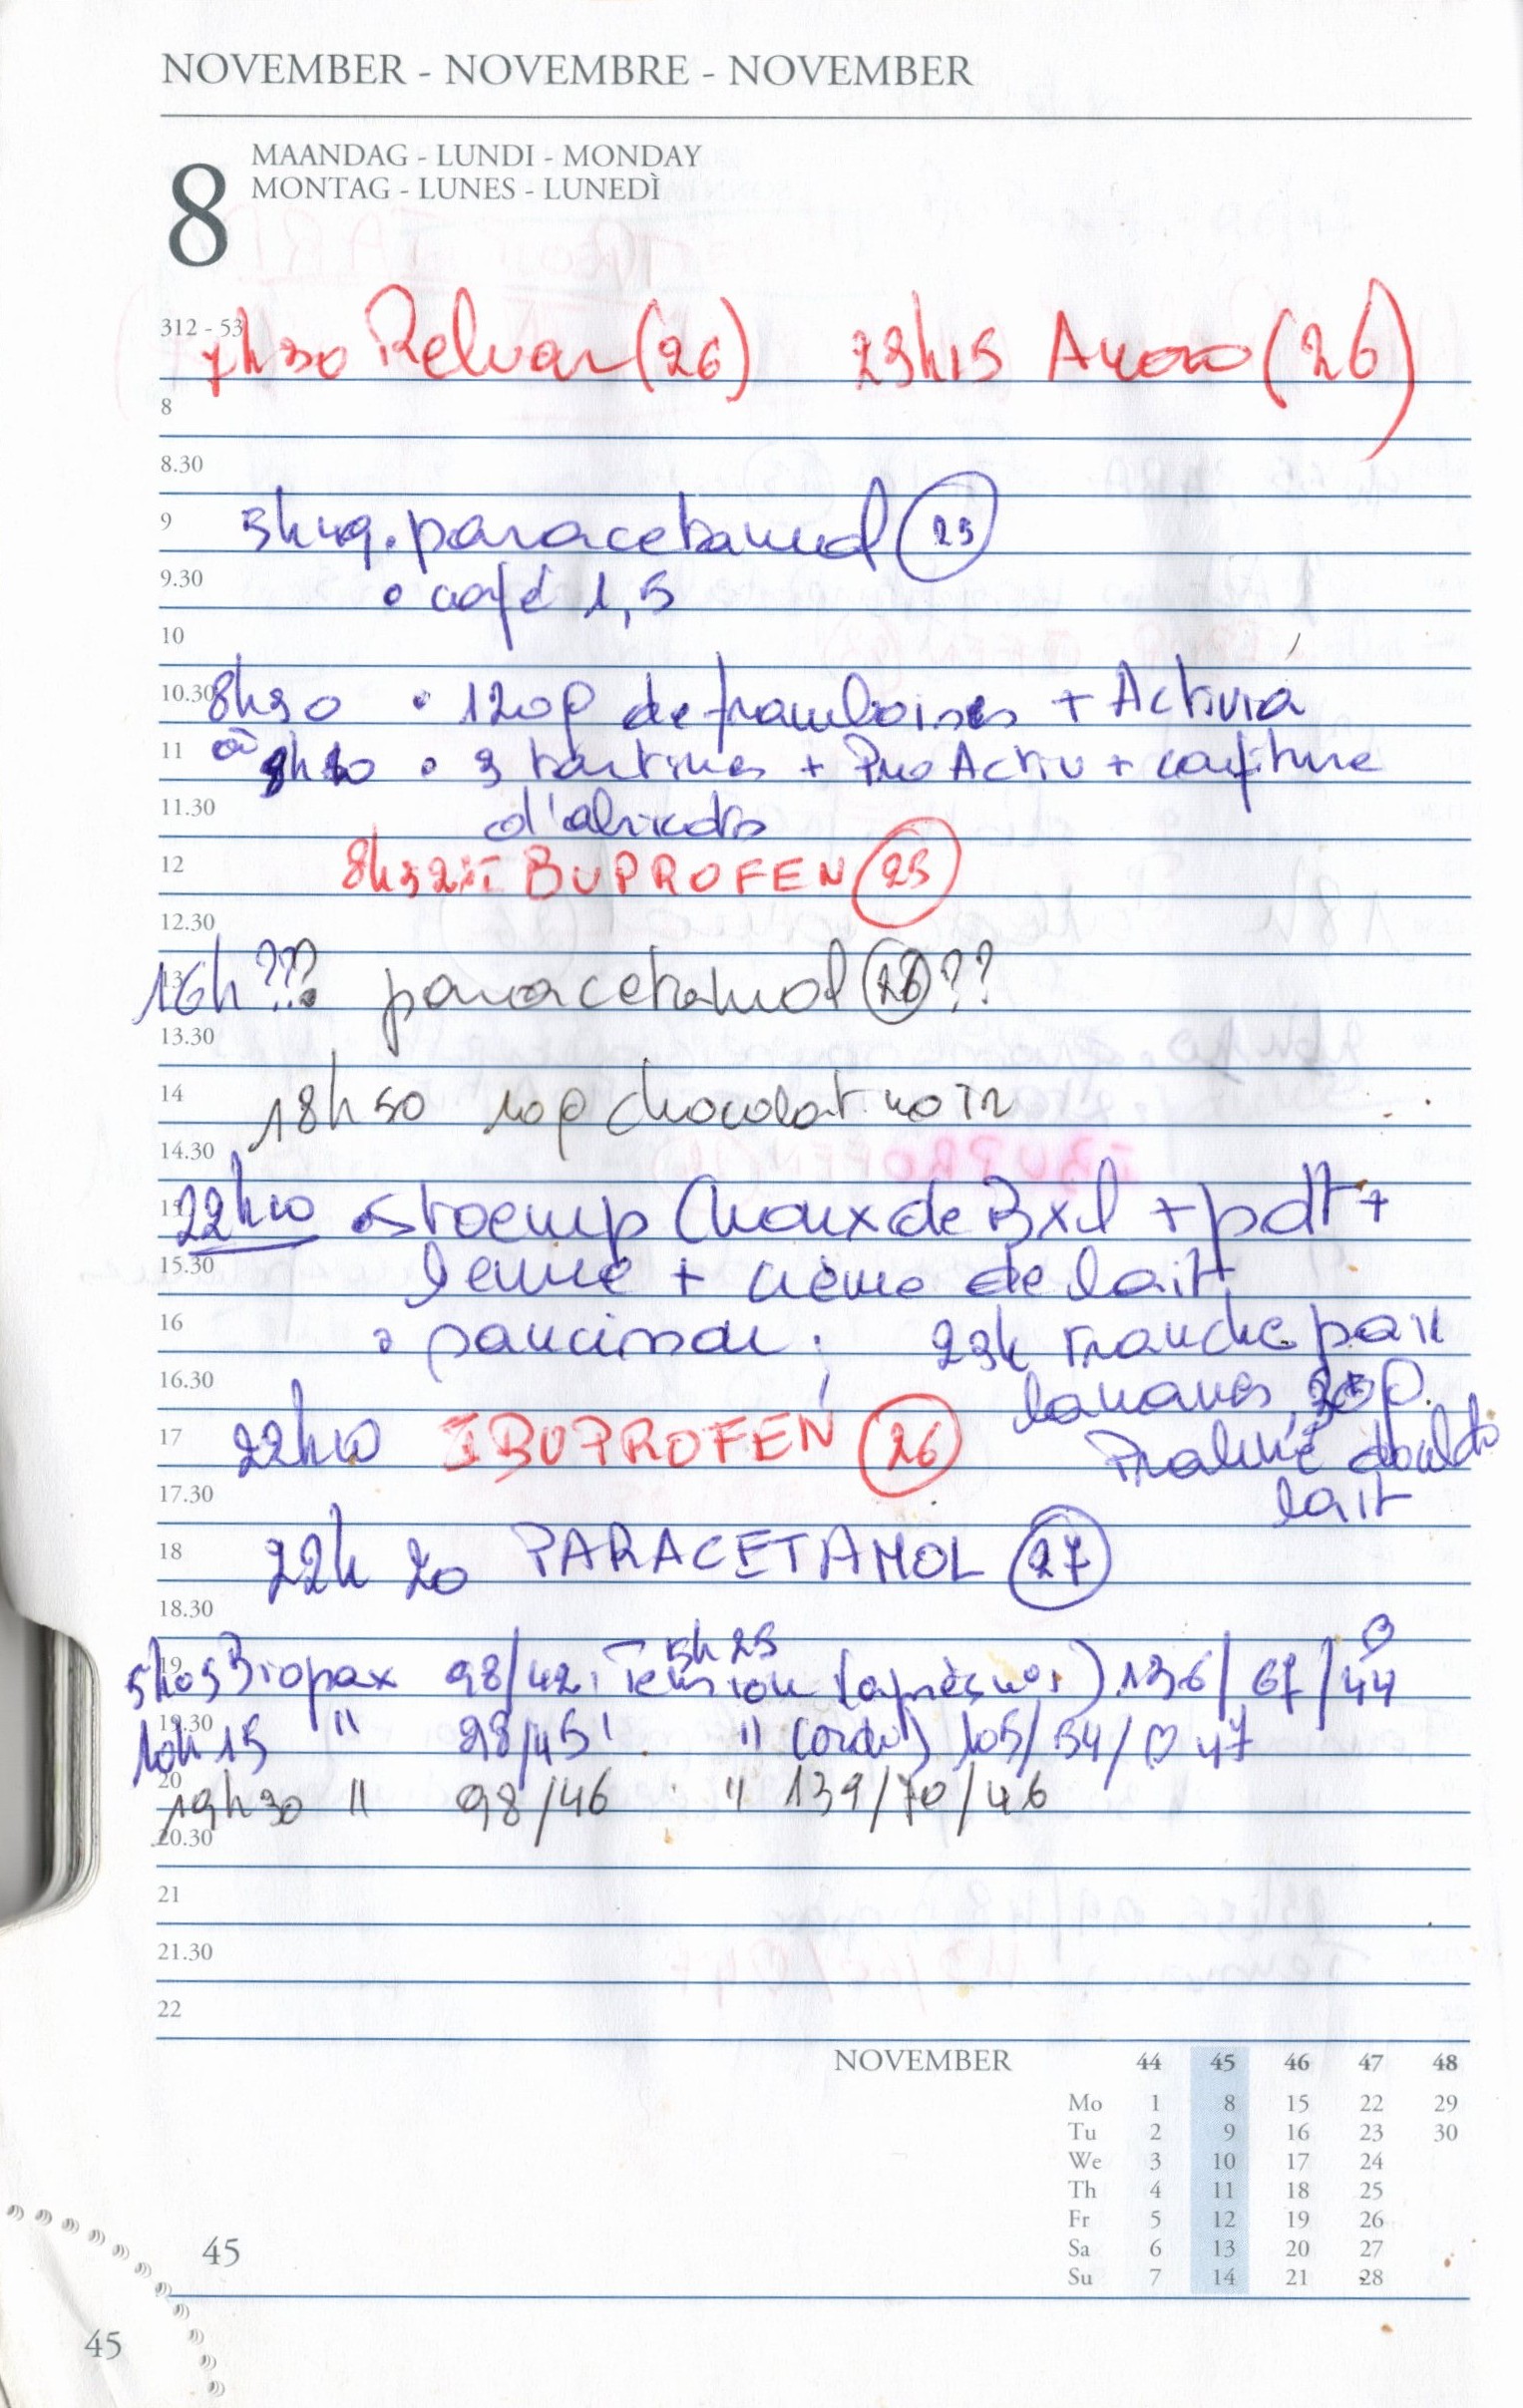 NOVEMBER - NOVEMBRE - NOVEMBER
8
MAANDAG - LUNDI - MONDAY
MONTAG - LUNES - LUNEDÌ
312 - 53
7h30 Relvar (26) 23h15 (26)
8
8.30
9 5h49. paracetamol (25)
9.30 • café 1,5
10
10.30 8h30 • 120g de framboises + Activia
11 à 9h10 • 3 tartines + Pro Activ + confiture
11.30 d'abricots
12 8h32: IBUPROFEN (25)
12.30
13 16h??? paracetamol (26)??
13.30
14 18h50 10g chocolat noir
14.30
22h10 • stoemp Choux de Bxl + pdt +
15.30 + crème de lait
16 • ; 23h tranche pain
16.30 bananes, 30g.
17 22h10 IBUPROFEN (26) Praliné
17.30 lait
18 22h20 PARACETAMOL (27)
18.30
19 5h05 Biopax 98/42: Tension 5h25 (après) 136/67/♡44
19.30 10h15 " 98/45: " 105/54/♡ 47
20 19h30 " 98/46 " 139/70/46
20.30
21
21.30
22
NOVEMBER 44 45 46 47 48
Mo 1 8 15 22 29
Tu 2 9 16 23 30
We 3 10 17 24
Th 4 11 18 25
Fr 5 12 19 26
Sa 6 13 20 27
Su 7 14 21 28
45
45